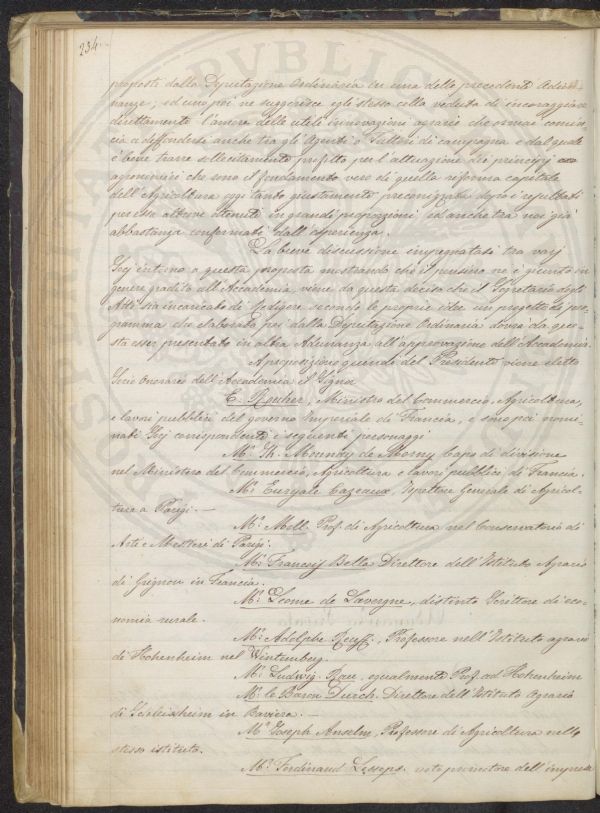 234.
proposti dalla Deputazione Ordinaria in una delle precedenti Adu-
nanze, ed uno poi ne suggerisce egli stesso colla veduta di incoraggiare
direttamente l'amore delle utili innovazioni agrarie che ormai comin-
cia a diffondersi anche tra gli Agenti o Fattori di campagna e dal quale
è bene trarre sollecitamente profitto per l'attuazione dei principj
agronomici che sono il fondamento vero di quella riforma capitale
dell'Agricoltura oggi tanto giustamente preconizzata dopo i resultati
per essa altrove ottenuti in grandi proporzioni ed anche tra noi già
abbastanza confermati dall'esperienza.
La breve discussione impegnatasi tra varj
Socj intorno a questa proposta mostrando che il pensiero ne è giunto in
genere gradito all'Accademia, viene da questa deciso che il Segretario degli
Atti sia incaricato di redigere secondo le proprie idee un progetto di pro-
gramma che elaborato poi dalla Deputazione Ordinaria dovrà da que-
sta esser presentato in altra Adunanza all'approvazione dell'Accademia.
A proposizione quindi del Presidente viene eletto
Socio Onorario dell'Accademia il Signor
E. Rouher, Ministro del Commercio, Agricoltura,
e lavori pubblici del governo Imperiale di Francia, e sono poi nomi-
nati Socj corrispondenti i seguenti personaggi
Mr. Th. Mounny de Morny Capo di divisione
nel Ministero del Commercio, Agricoltura e lavori pubblici di Francia.
Mr. Euryale Cazeaux, Ispettore Generale di Agricol-
tura a Parigi. —
Mr. Moll. Prof. di Agricoltura nel Conservatorio di
Arti e Mestieri di Parigi.
Mr. Françoij Bella Direttore dell'Istituto Agrario
di Grignon in Francia.
Mr. Leonce de Lavergne, distinto Scrittore di eco-
nomia rurale.
Mr. Adolphe Reuff, Professore nell'Istituto agrario
di Hohenheim nel Wirtemberg.
Mr. Ludwig Rau, egualmente Prof. ad Hohenheim
Mr. le Baron Durch. Direttore dell'Istituto Agrario
di Schleissheim in Baviera. —
Mr. Joseph Anselm, Professore di Agricoltura nello
stesso istituto.
Mr. Ferdinand Lesseps. noto promotore dell'impresa